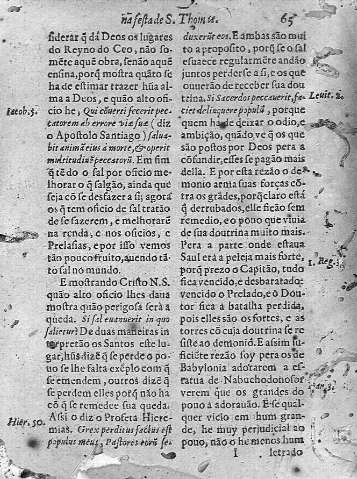 nafesta de S. Thome. 65
siderar q̃ dá Deos os lugares
do Reyno do Ceo, não so-
mẽte aquẽ obra, senão aquẽ
ensina, porq̃ mostra quãto se
ha de estimar trazer hũa al-
ma a Deos, e quão alto ofi-
Iacob. 5.
cio he, Qui cõuerti fecerit pec-
catorem ab errore viæ suæ (diz
o Apostolo Santiago) salua-
bit animã eius à morte, & operit
multitudinẽ peccatorũ. Em fim
q̃ tẽdo o sal por oficio me-
lhorar o q̃ salgão, ainda que
seja cõ se desfazer a si; agora
os q̃ tem oficio de sal tratão
de se fazerem, e melhorarẽ
na renda, e nos oficios, e
Prelasias, e por isso vemos
tão pouco fruito, auendo tã-
to sal no mundo.
E mostrando Cristo N. S.
quão alto oficio lhes daua
mostra quão perigosa será a
queda. Si sal euanuerit in quo
salietur? De duas maneiras in-
terpretão os Santos este lu-
gar, hũs dizẽ q̃ se perde o po-
uo se lhe falta exẽplo com q̃
se emendem, outros dizẽ q̃
se perdem elles porq̃ não ha
cõ q̃ se remedee sua queda.
Hier. 50.
Assi o diz o Profeta Hiere-
mias. Grex perditus factus est
populus meus, Pastores eorũ se-
duxerũt eos. E ambas são mui
to a proposito, porq̃ se o sal
esuaece regularmẽte andão
juntos perderse a si, e os que
ouuerão de receber sua dou
Leuit. 2.
trina. Si Sacerdos peccauerit, fa-
ciet delinquere populũ, porque
quem ha de deixar o odio, e
ambição, quãdo ve q̃ os que
são postos por Deos pera a
cõfundir, esses se pagão mais
della. E por esta rezão o de-
monio arma suas forças cõ-
tra os grãdes, porq̃ claro está
q̃ derrubados, elle ficão sem
remedio, e o pouo que viuia
de sua doutrina muito mais.
Pera a parte onde estaua
1. Reg.
Saul erá a peleja mais forte,
porq̃ prezo o Capitão, tudo
fica vencido, e desbaratado:
vencido o Prelado, e o Dou-
tor fica a batalha perdida,
pois elles são os fortes, e as
torres cõ cuja doutrina se re
siste ao demonio. E assim su-
ficiẽte rezão soy pera os de
Babylonia adorarem a es-
tatua de Nabuchodonosor
verem que os grandes do
pouo a adorauão. E se qual-
quer vicio em hum gran-
de, he muy perjudicial ao
pouo, não o he menos hum
I letrado